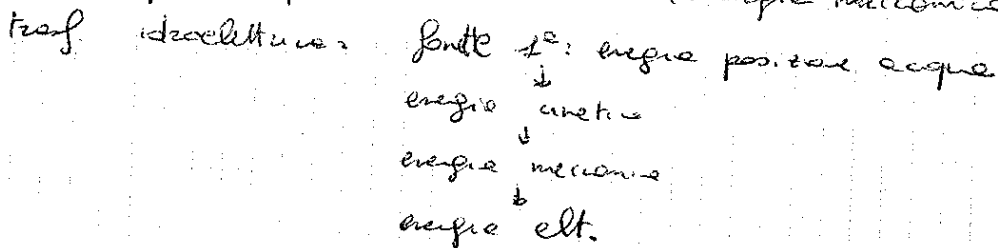 energia meccanica
trasf idroelettrica: fonte 1ª: energia posizione acqua
↓
energia cinetica
↓
energia meccanica
↓
energia elt.